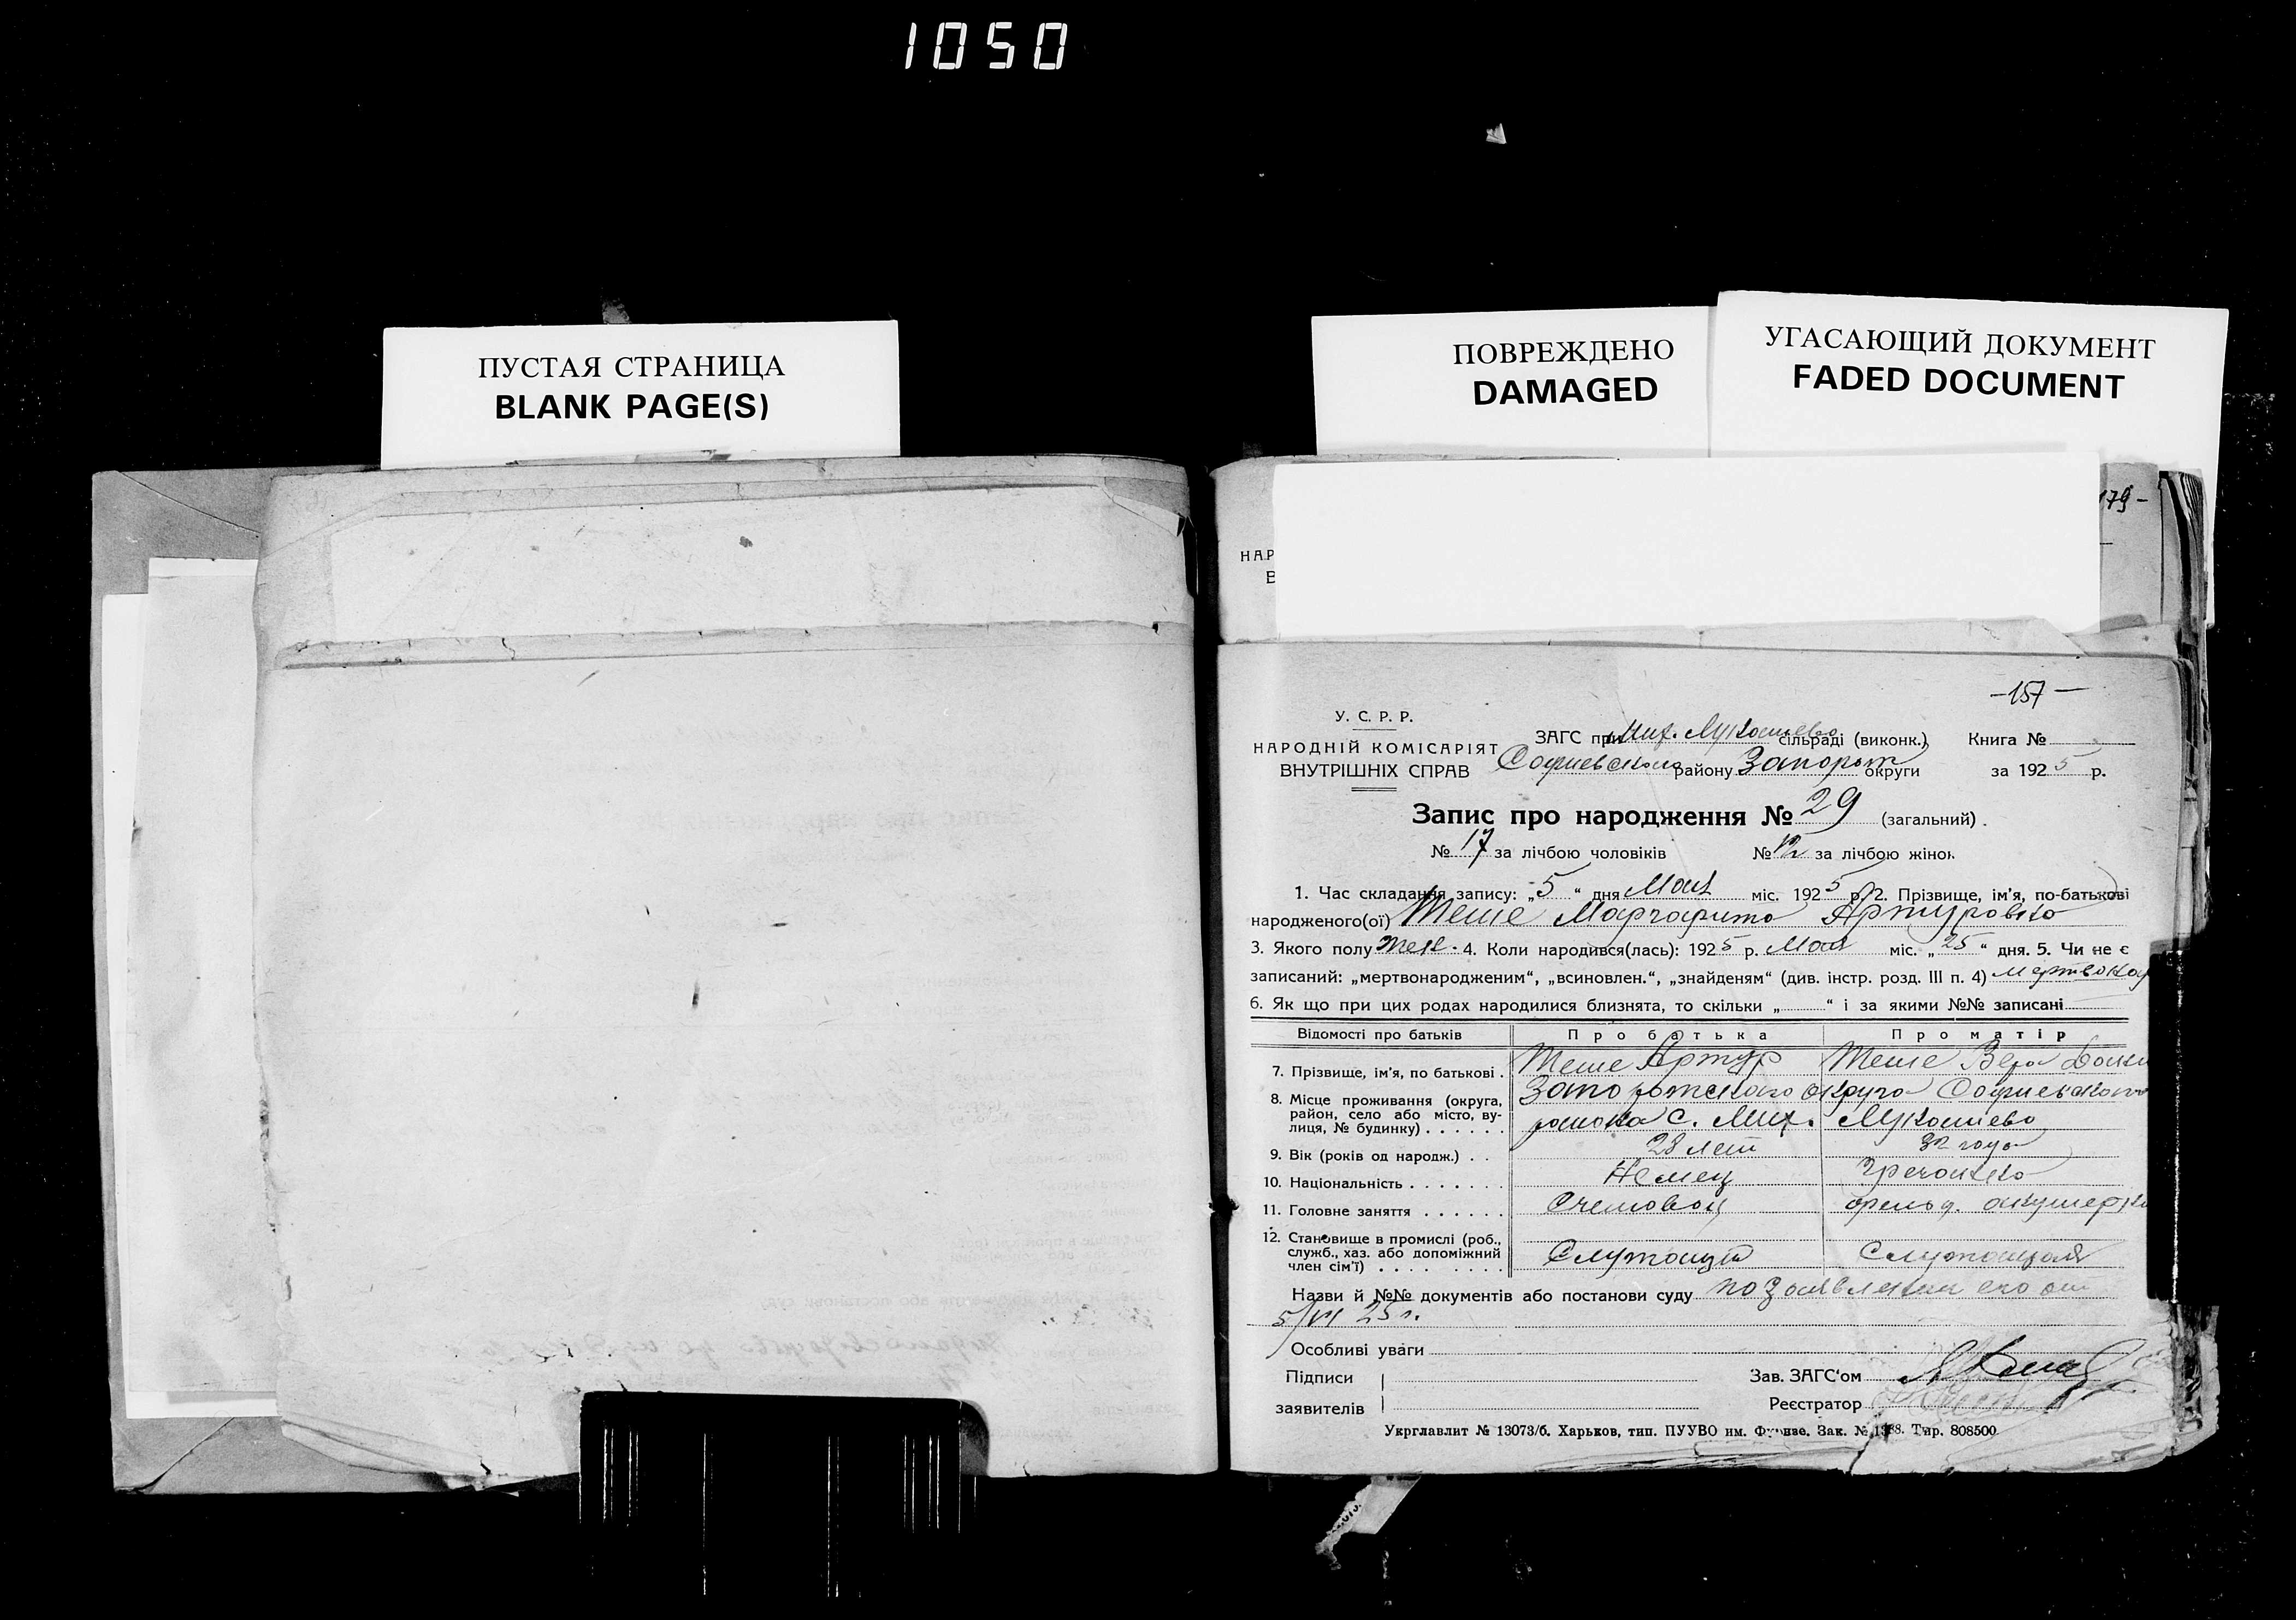 1050
ПУСТАЯ СТРАНИЦА
BLANK PAGE(S)
ПОВРЕЖДЕНО
DAMAGED
УГАСАЮЩИЙ ДОКУМЕНТ
FADED DOCUMENT
179-
НАР
В
-157-
У. С. Р. Р.
НАРОДНІЙ КОМІСАРІЯТ
ВНУТРІШНІХ СПРАВ
ЗАГС при Мих. Лукашево сільраді (виконк.)
Софиевского району Запорож округи
Книга №
за 1925 р.
Запис про народження № 29 (загальний).
№ 17 за лічбою чоловіків № 12 за лічбою жінок
1. Час складання запису: „5“ дня Мая міс. 1925 р. 2. Прізвище, ім’я, по-батькові
народженого(ої) Теше Маргарита Артуровна
3. Якого полу жен. 4. Коли народився(лась): 1925 р. Мая міс. „25“ дня. 5. Чи не є
записаний: „мертвонародженим“, „всиновлен.“, „знайденям“ (див. інстр. розд. III п. 4)
6. Як що при цих родах народилися близнята, то скільки „ “ і за якими №№ записані
Відомості про батьків Про батька Про матір
7. Прізвище, ім’я, по батькові . Теше Артур Теше Вера
8. Місце проживання (округа, Запорожского округа Софиевского
район, село або місто, ву-
лиця, № будинку) . . . . . . района с. Мих. Лукашево
9. Вік (років од народж.) . . 28 лет 32 года
10. Національність . . . . . . . Немец Гречанка
11. Головне заняття . . . . . . Счетовод фельд. акушерка
12. Становище в промислі (роб.,
служб., хаз. або допоміжний
член сім’ї) . . . . . . . . Служащий Служащая
Назви й №№ документів або постанови суду по заявлению его от
5/VI 25 г.
Особливі уваги
Підписи
заявителів
Зав. ЗАГС‘ом
Реєстратор
Укрглавлит № 13073/б. Харьков, тип. ПУУВО им. Фрунзе. Зак. № 1388. Тир. 808500